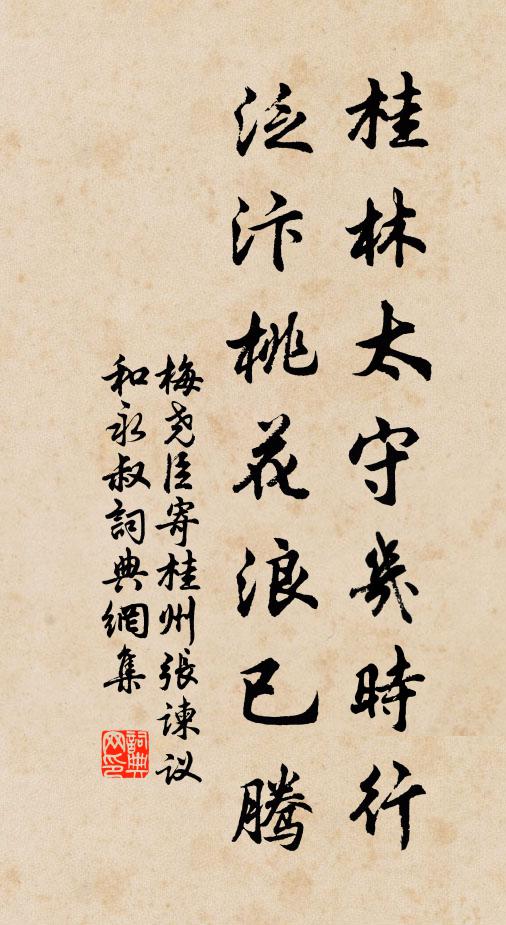 桂林太守幾時行
泛汴桃花浪已腾
梅尧臣寄桂州張諫议
和永叔詞典網集
詞典
网印